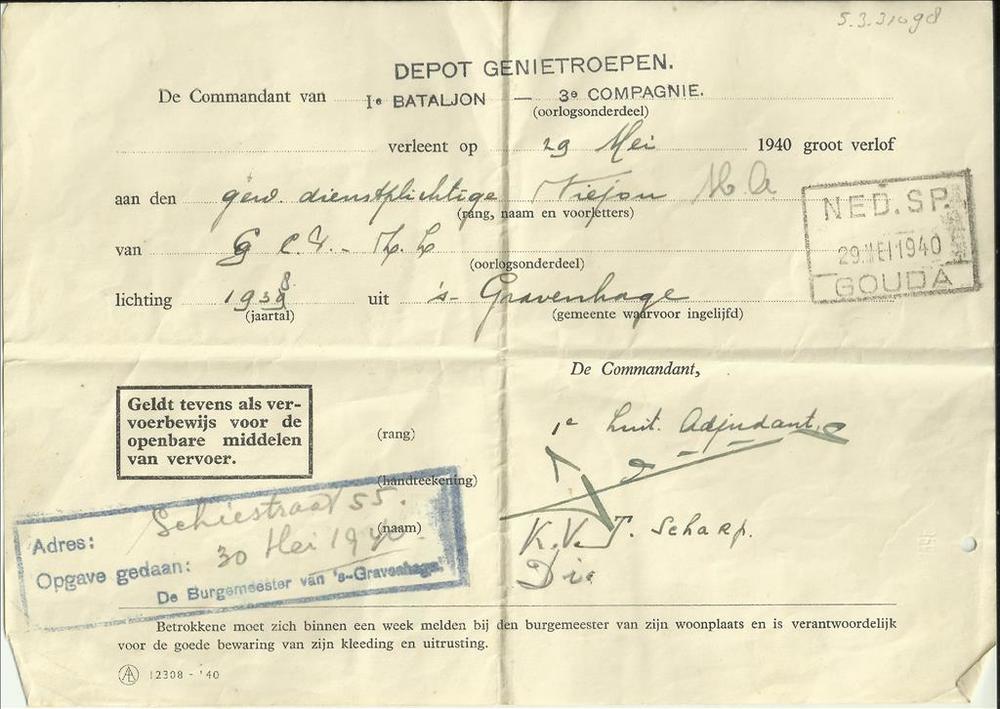 5.3.31098
DEPOT GENIETROEPEN.
De Commandant van Ie BATALJON — 3e COMPAGNIE.
(oorlogsonderdeel)
verleent op 29 Mei 1940 groot verlof
aan den gew. dienstplichtige
(rang, naam en voorletters)
NED.SP.
29 MEI 1940
GOUDA
van
(oorlogsonderdeel)
lichting 1938 uit 's-Gravenhage
(jaartal) (gemeente waarvoor ingelijfd)
De Commandant,
Geldt tevens als ver-
voerbewijs voor de
openbare middelen
van vervoer.
(rang) 1e Luit. Adjudant.
(handteekening)
(naam) K.V. T. Scharp.
Adres: Schiestraat 55.
Opgave gedaan: 30 Mei 1940.
De Burgemeester van 's-Gravenhage.
Betrokkene moet zich binnen een week melden bij den burgemeester van zijn woonplaats en is verantwoordelijk
voor de goede bewaring van zijn kleeding en uitrusting.
12308 - '40